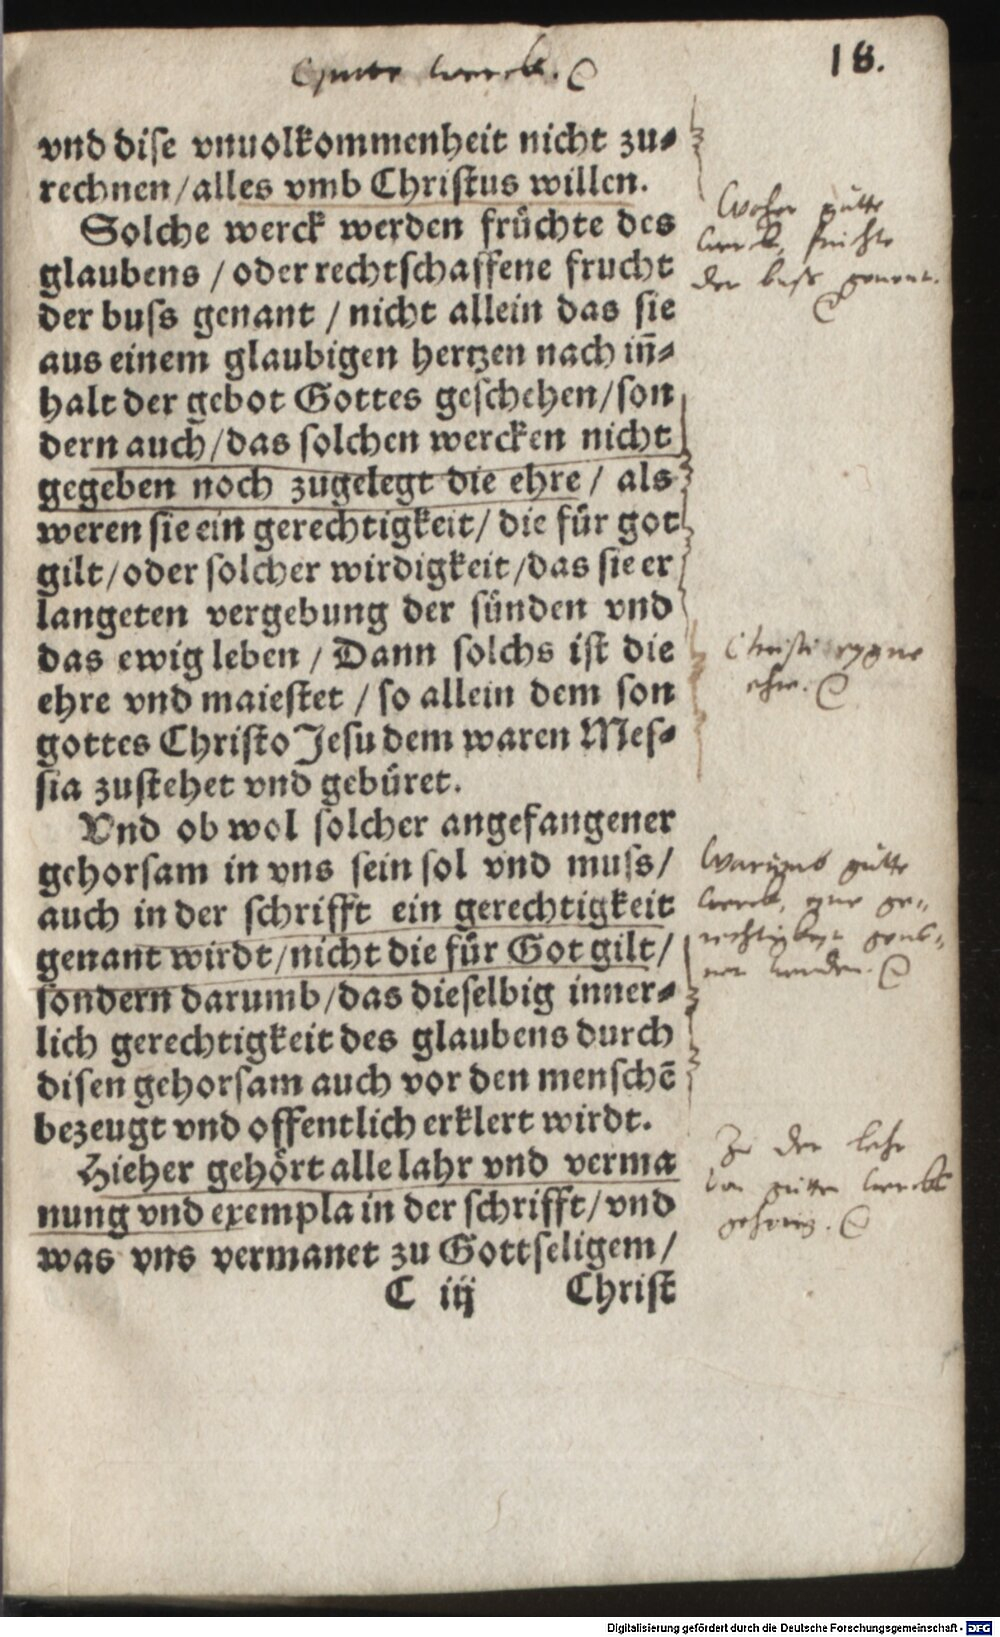 Gutte werck.
18.
vnd dise vnuolkommenheit nicht zu⸗
rechnen/alles vmb Christus willen.
Solche werck werden früchte des
glaubens / oder rechtschaffene frucht
der buss genant / nicht allein das sie
aus einem glaubigen hertzen nach iñ⸗
halt der gebot Gottes geschehen/son
dern auch/das solchen wercken nicht
gegeben noch zugelegt die ehre / als
weren sie ein gerechtigkeit/ die für got
gilt/oder solcher wirdigkeit/das sie er
langeten vergebung der sünden vnd
das ewig leben / Dann solchs ist die
ehre vnd maiestet / so allein dem son
gottes Christo Jesu dem waren Mes⸗
sia zustehet vnd gebüret.
Vnd ob wol solcher angefangener
gehorsam in vns sein sol vnd muss/
auch in der schrifft ein gerechtigkeit
genant wirdt/nicht die für Got gilt/
sondern darumb/das dieselbig inner⸗
lich gerechtigkeit des glaubens durch
disen gehorsam auch vor den menschē
bezeugt vnd offentlich erklert wirdt.
Hieher gehört alle lahr vnd verma
nung vnd exempla in der schrifft/vnd
was vns vermanet zu Gottseligem/
C iij Christ
Woher gutte
werck, frichte
der buss genent.
Christi eygne
ehre.
Warumb gutte
werck, eyne ge⸗
rechtigkeyt
werden.
Zu der lehr
von gutten werckē
gehorig.
Digitalisierung gefördert durch die Deutsche Forschungsgemeinschaft - DFG